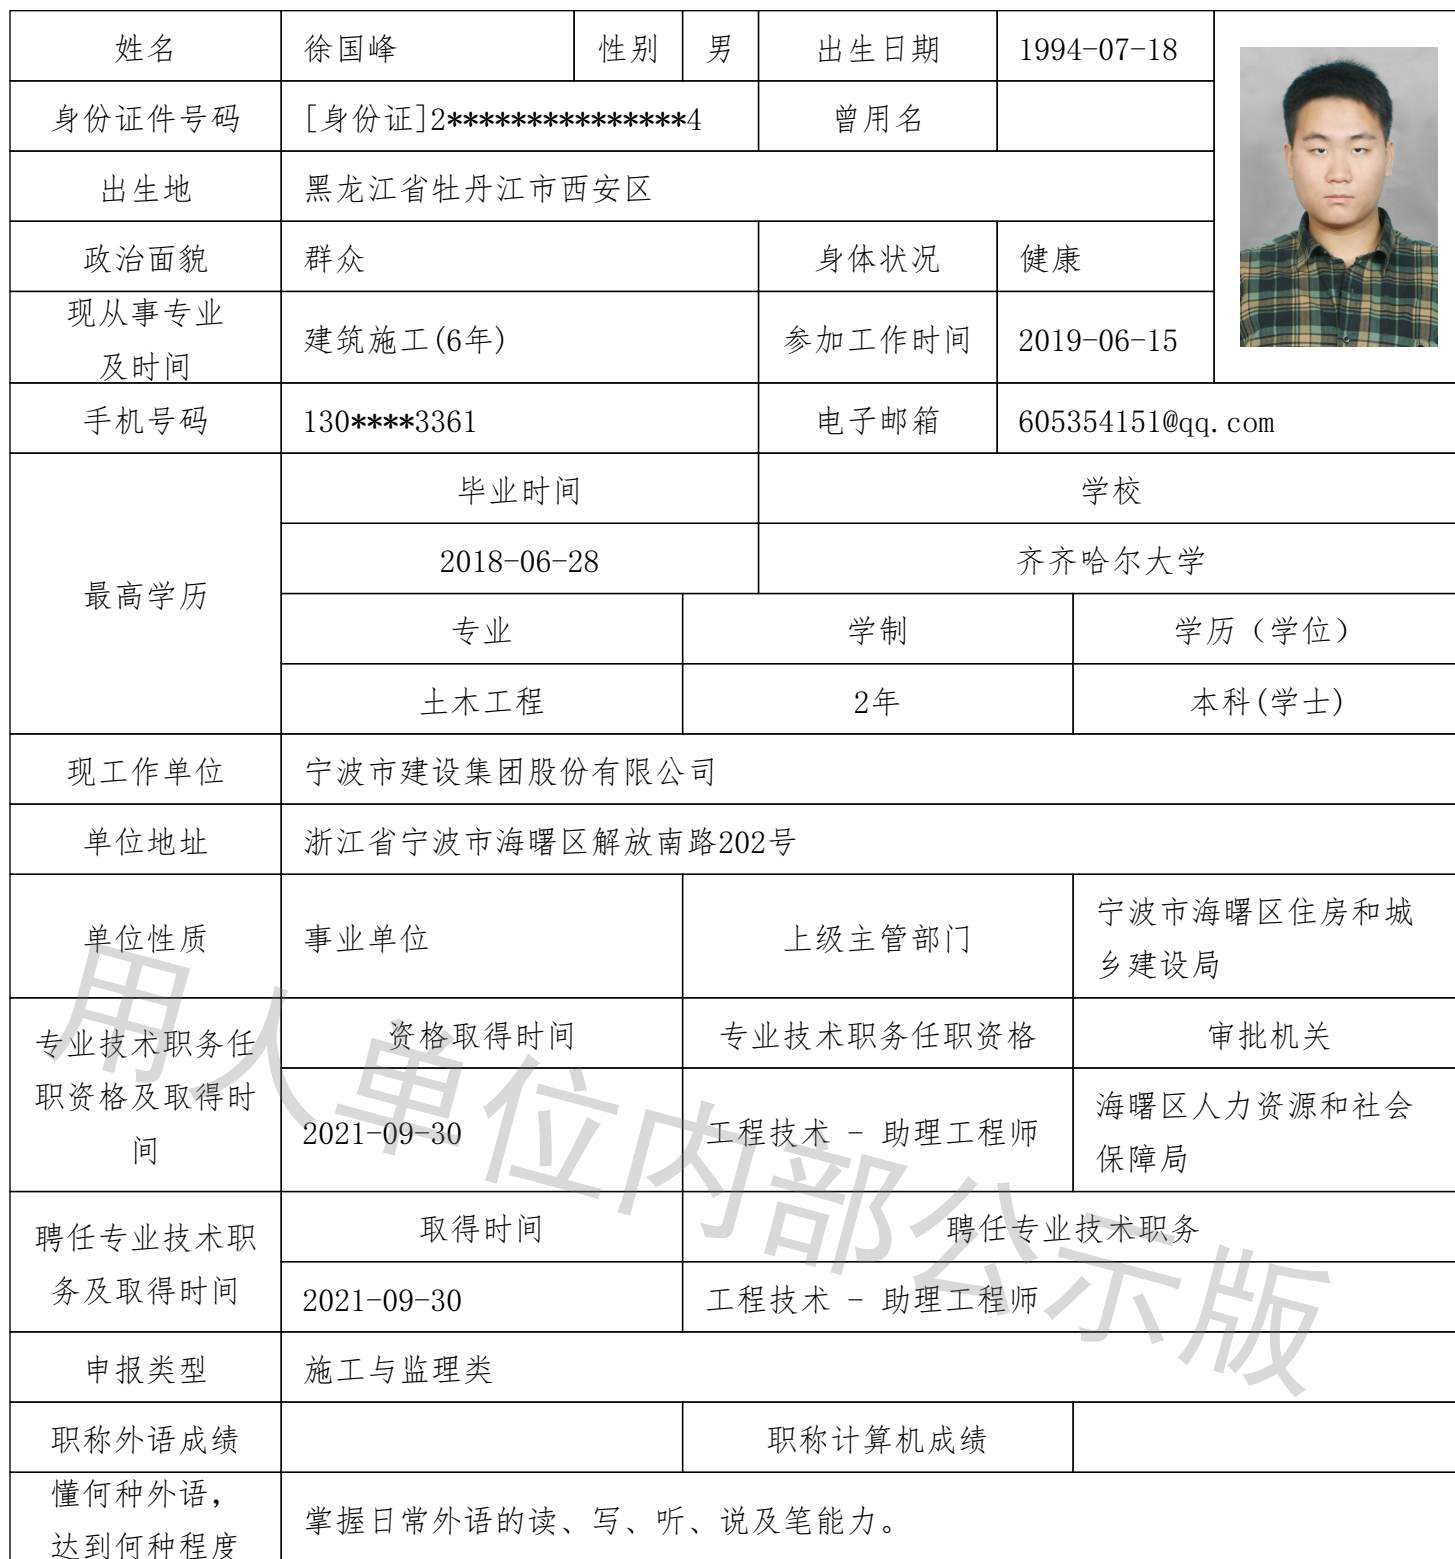 姓名 徐国峰 性别 男 出生日期 1994-07-18
身份证件号码 [身份证]2***************4 曾用名
出生地 黑龙江省牡丹江市西安区
政治面貌 群众 身体状况 健康
现从事专业
及时间
建筑施工(6年) 参加工作时间 2019-06-15
手机号码 130****3361 电子邮箱 605354151@qq.com
最高学历
毕业时间 学校
2018-06-28 齐齐哈尔大学
专业 学制 学历（学位）
土木工程 2年 本科(学士)
现工作单位 宁波市建设集团股份有限公司
单位地址 浙江省宁波市海曙区解放南路202号
单位性质 事业单位 上级主管部门
宁波市海曙区住房和城
乡建设局
专业技术职务任
职资格及取得时
间
资格取得时间 专业技术职务任职资格 审批机关
2021-09-30 工程技术 - 助理工程师
海曙区人力资源和社会
保障局
聘任专业技术职
务及取得时间
取得时间 聘任专业技术职务
2021-09-30 工程技术 - 助理工程师
申报类型 施工与监理类
职称外语成绩 职称计算机成绩
懂何种外语，
达到何种程度
掌握日常外语的读、写、听、说及笔能力。
用人单位内部公示版